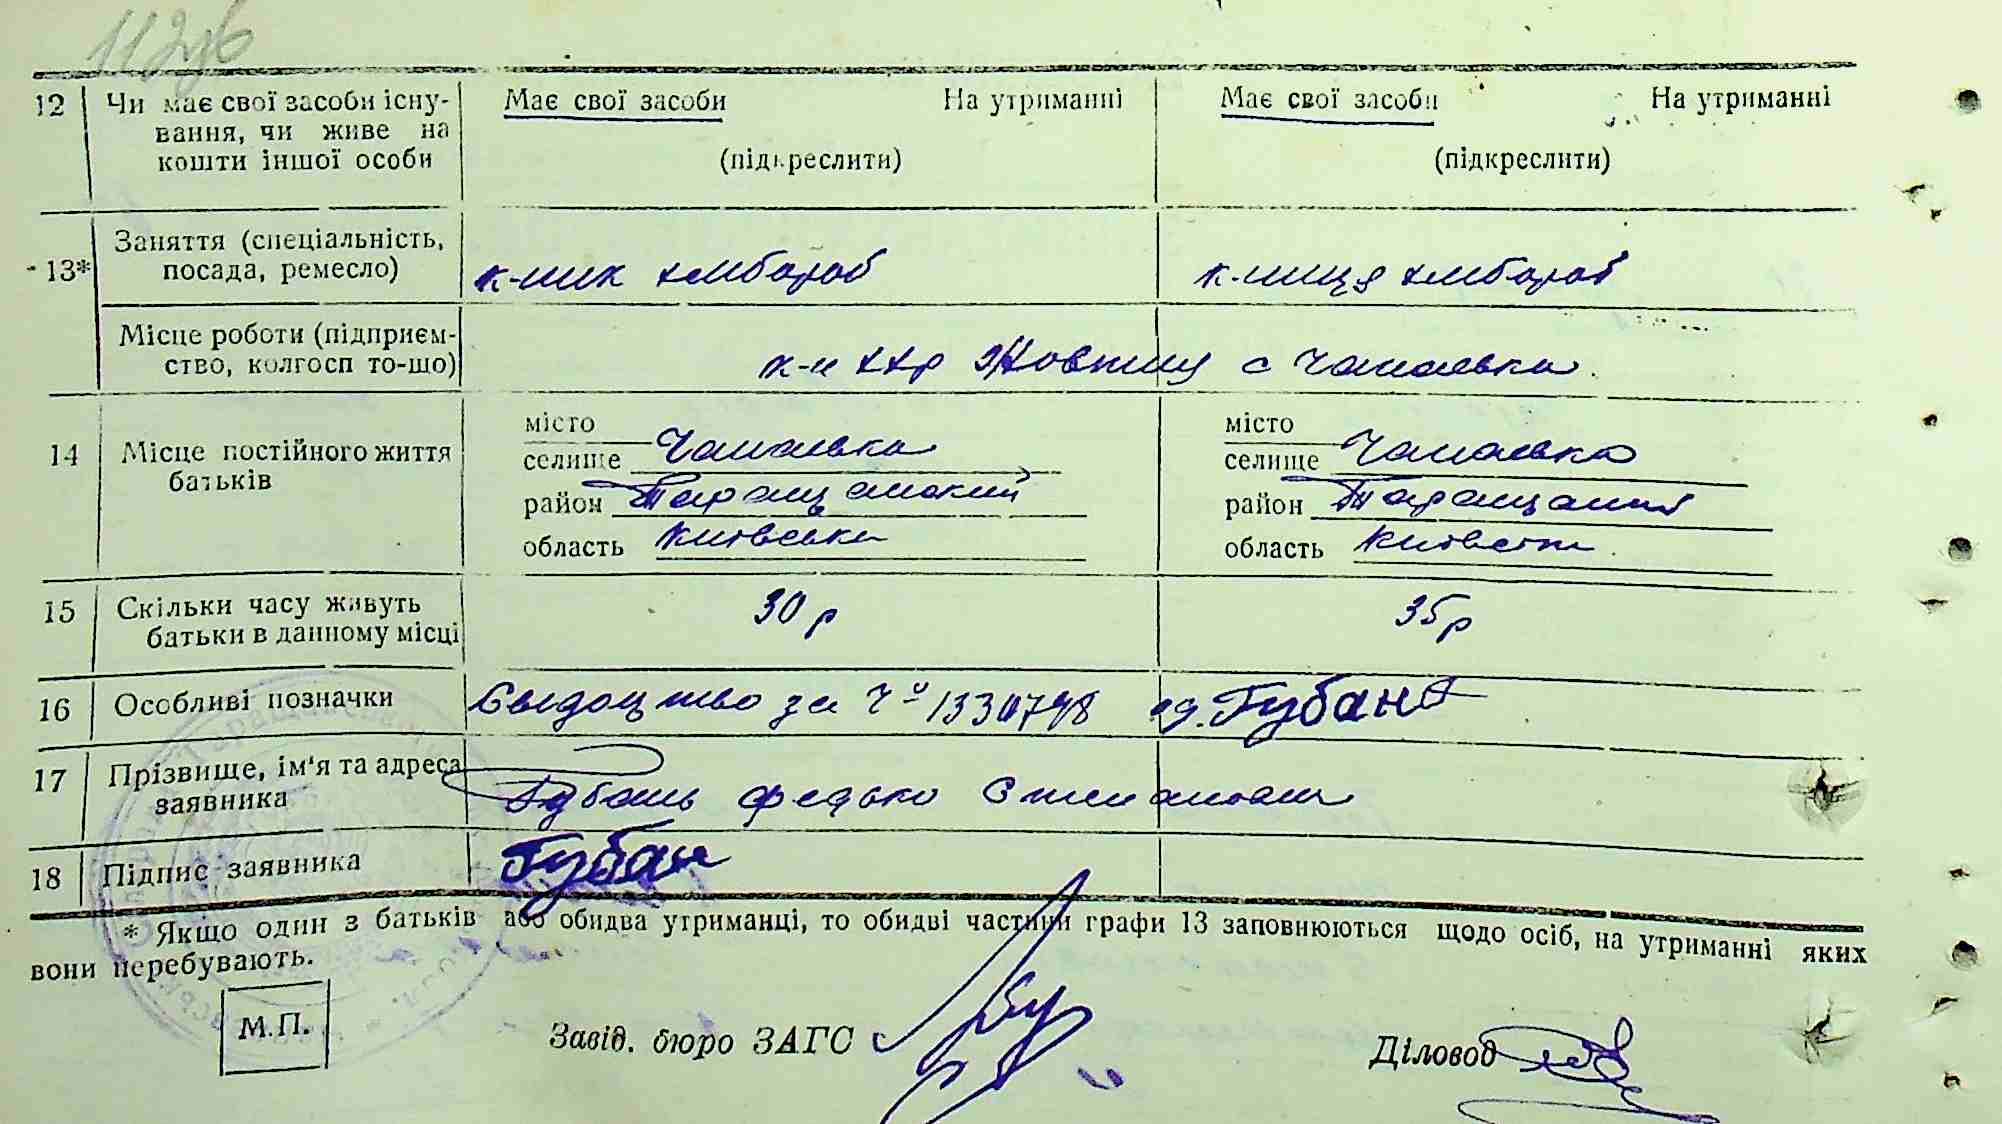 112
12 Чи має свої засоби існу-
вання, чи живе на
кошти іншої особи
Має свої засоби На утриманні
(підкреслити)
Має свої засоби На утриманні
(підкреслити)
13* Заняття (спеціальність,
посада, ремесло)
к-ник хлібороб
к-ниця хлібороб
Місце роботи (підприєм-
ство, колгосп то-що)
к-п ХХр Жовтня с Чапаєвка
14 Місце постійного життя
батьків
місто
селище Чапаєвка
район Таращанский
область Київська
місто
селище Чапаєвка
район Таращански
область Київська
15 Скільки часу живуть
батьки в данному місці
30 р
35 р
16 Особливі позначки
Свидоцтво за Ч° 1330798 од. Губань
17 Прізвище, ім'я та адреса
заявника
Губань Федько Степанович
18 Підпис заявника
Губань
* Якщо один з батьків або обидва утриманці, то обидві частини графи 13 заповнюються щодо осіб, на утриманні яких
вони перебувають.
М.П.
Завід. бюро ЗАГС
Діловод